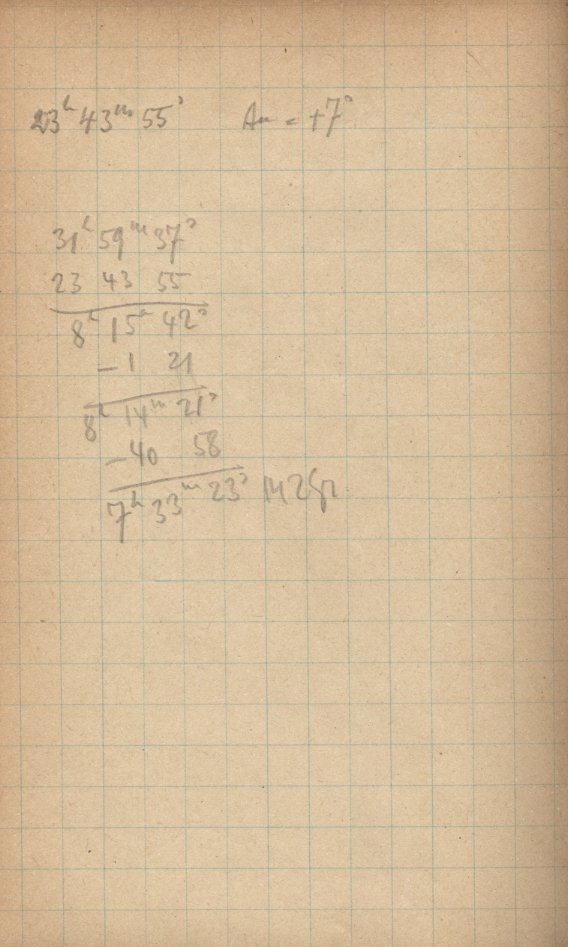 23ʰ 43ᵐ 55ˢ Au = +7ˢ
31ʰ 59ᵐ 37ˢ
23 43 55
8ʰ 15ᵐ 42ˢ
-1 21
8ʰ 14ᵐ 21ˢ
-40 58
7ʰ 33ᵐ 23ˢ